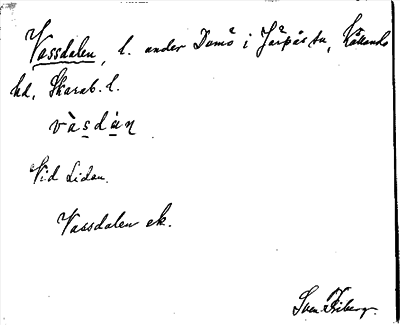 Vassdalen, l. under Damö i Järpås sn, Kållands
hd, Skarab. l.
vàsdàn
Vid Lidan.
Vassdalen ek.
Sven Friberg.